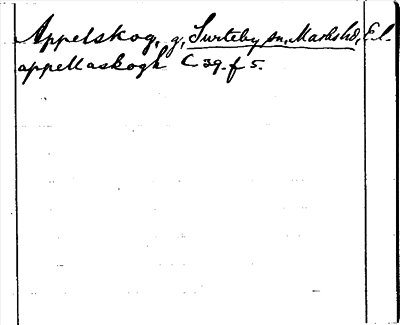 Appelskog, g, Surteby sn, Marks hd, El.
appellaskogh C 39. f 5.